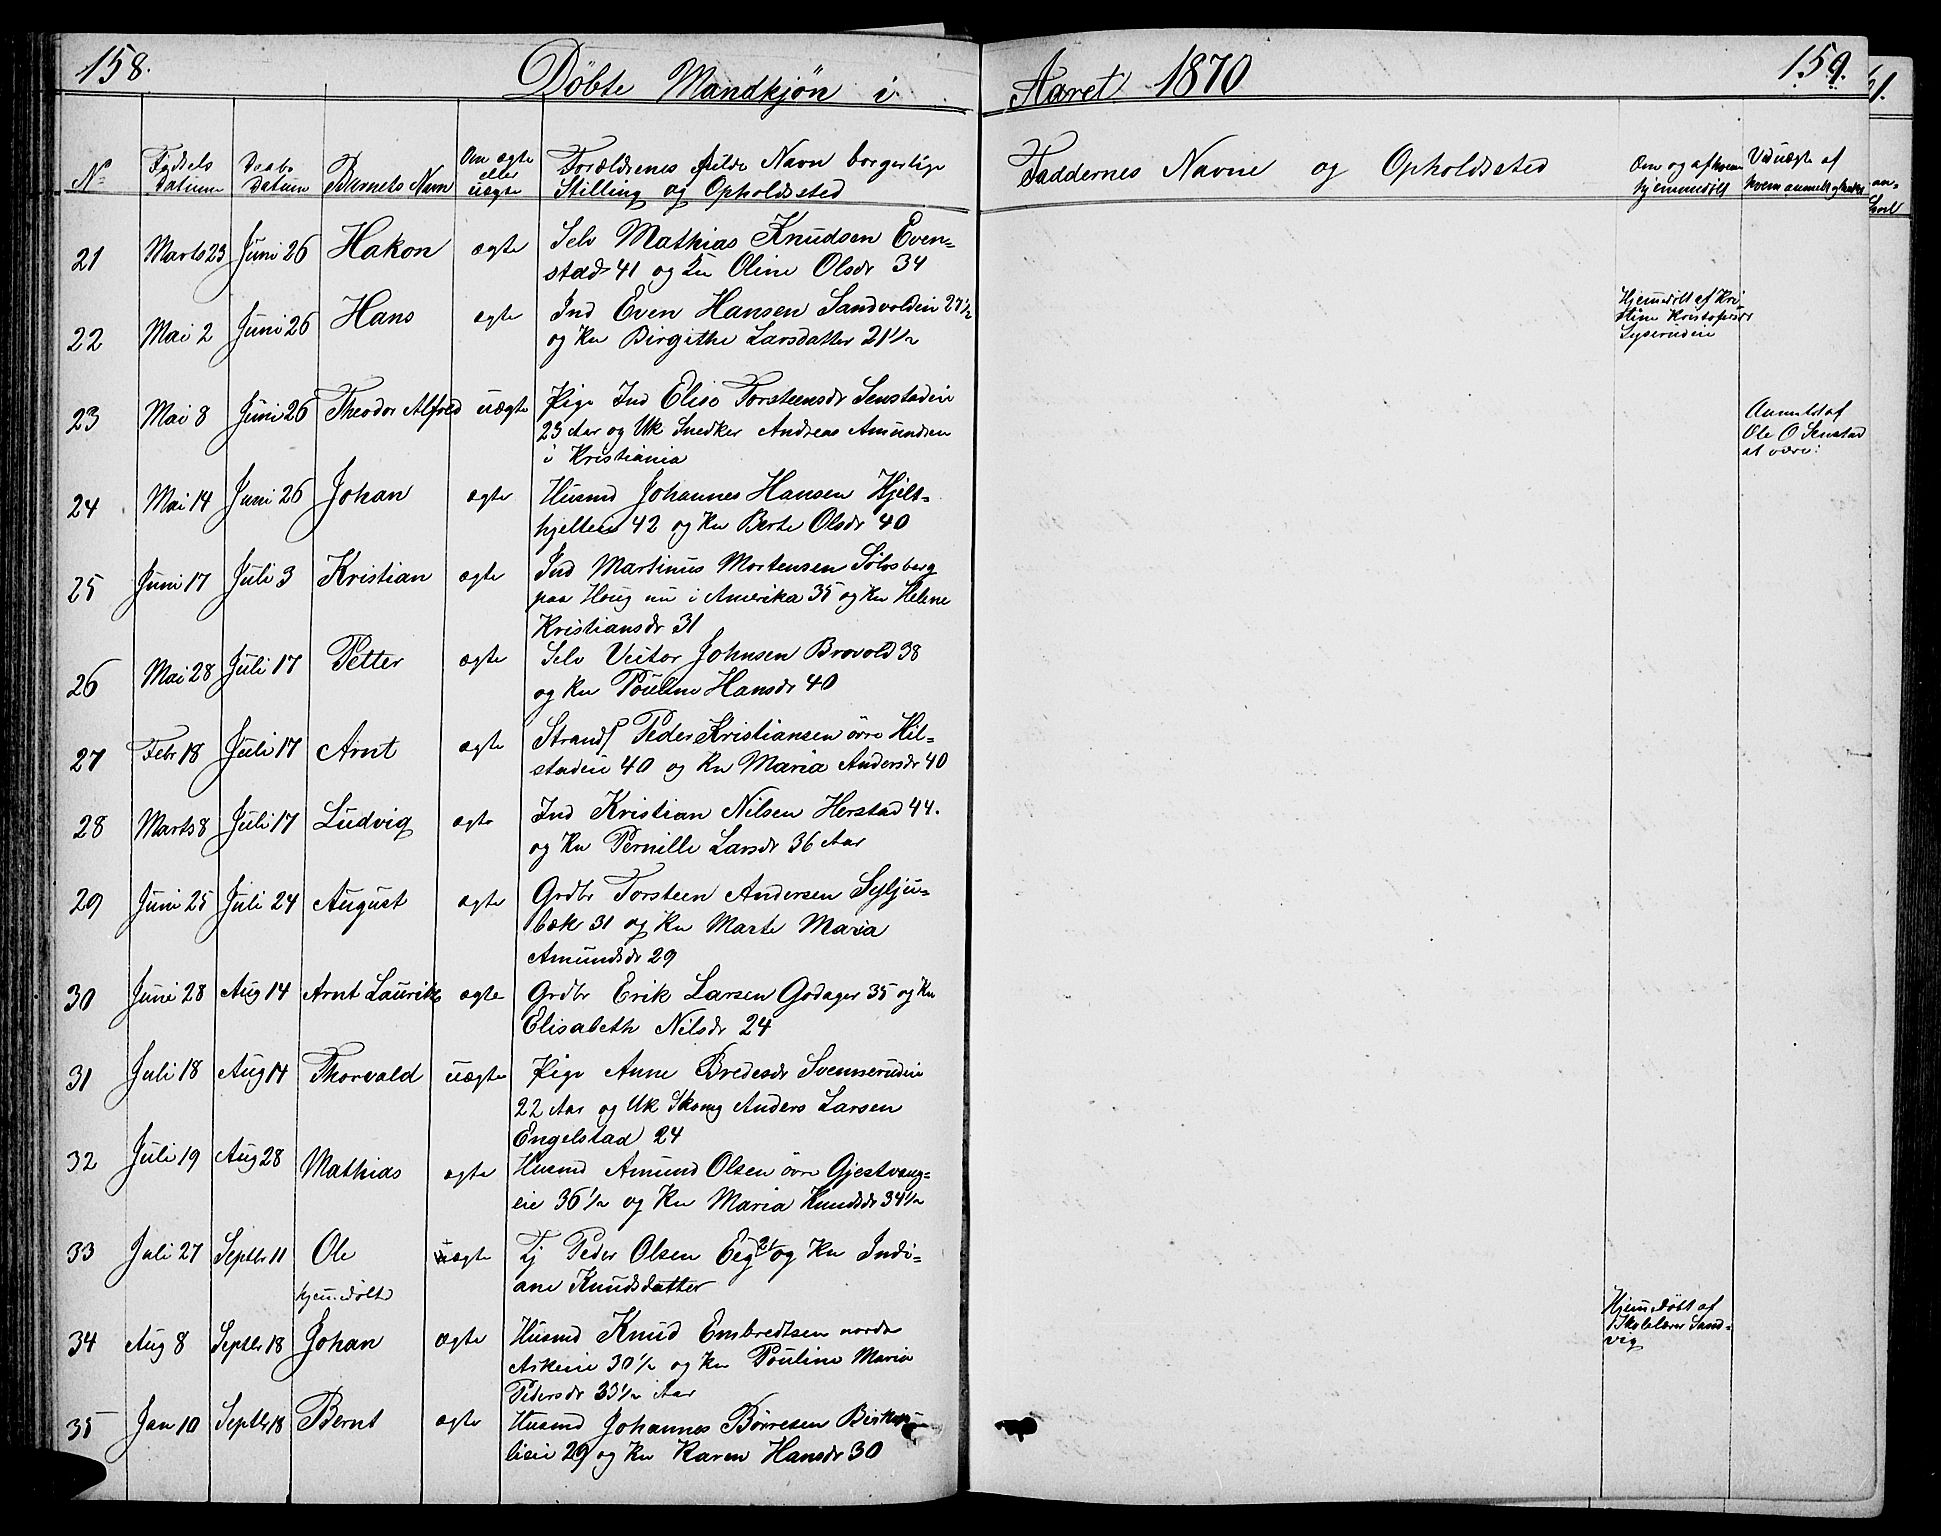 158.
Döbte Mandkjön i
Aaret 1870
159.
No
Fødsels
datum
Daabs
datum
Barnets Navn
Om ægte
eller
uægte
Forældrenes fulde Navn borgerlige
Stilling og Opholdssted
Faddernes Navne og Opholdssted
Om og af hvem
hjemmedöbt
Ved uægte af
hvem anmeldt
21 Marts 23 Juni 26 Hakon ægte Selv Mathias Knudsen Even=
stad 41 og Ku Oline Olsdr 34
22 Mai 2 Juni 26 Hans ægte Ind Even Hansen Sandvoldeie 27 1/2
og Ku Birgithe Larsdatter 21 1/2
Hjemdöbt af Kri
stine Kristofersdr
Lyserudeie
23 Mai 8 Juni 26 Theodor Alfred uægte Pige Ind Elise Torsteensdr Senstadeie
23 Aar og Uk Snedker Andreas Amundsen
i Kristiania
Anmeldt af
Ole O Senstad
at være:
24 Mai 14 Juni 26 Johan ægte Husmd Johannes Hansen Hjelt=
hjelteeie 42 og Ku Berte Olsdr 40
25 Juni 17 Juli 3 Kristian ægte Ind Martinus Mortensen Sölvsberg
paa Houg nu i Amerika 35 og Ku Helene
Kristiansdr 31
26 Mai 28 Juli 17 Petter ægte Selv Victor Johnsen Brovold 38
og Ku Pouline Hansdr 40
27 Febr 18 Juli 17 Arnt ægte Strands Peder Kristiansen övre Hil=
stadeie 40 og Ku Maria Andersdr 40
28 Marts 8 Juli 17 Ludvig ægte Ind Kristian Nilsen Herstad 44.
og Ku Pernille Larsdr 36 Aar
29 Juni 25 Juli 24 August ægte Grdbr Torsteen Andersen Sylju=
bæk 31 og Ku Marte Maria
Amundsdr 29
30 Juni 28 Aug 14 Arnt Lauritz ægte Grdbr Erik Larsen Godager 35 og Ku
Elisabeth Nilsdr 24
31 Juli 18 Aug 14 Thorvald uægte Pige Anne Bredesdr Svenserudeie
22 Aar og Uk Skomg Anders Larsen
Engelstad 24
32 Juli 19 Aug 28 Mathias ægte Husmd Amund Olsen övre Gjestvang=
eie 36 1/2 og Ku Maria Knudsdr 34 1/2
33 Juli 27 Septbr 11 Ole uægte Tj Peder Olsen Eeg 21 og Ku Indi=
ane Knudsdatter
hjemdöbt
34 Aug 8 Septbr 18 Johan ægte Husmd Knud Embredtsen nordre
Askeeie 30 1/2 og Ku Pouline Maria
Pedersdr 33 1/2 Aar
Hjemdöbt af
Skolelærer Sand=
vig
35 Jan 10 Septbr 18 Bernt ægte Husmd Johannes Börresen Birke
lieie 29 og Ku Karen Hansdr 30